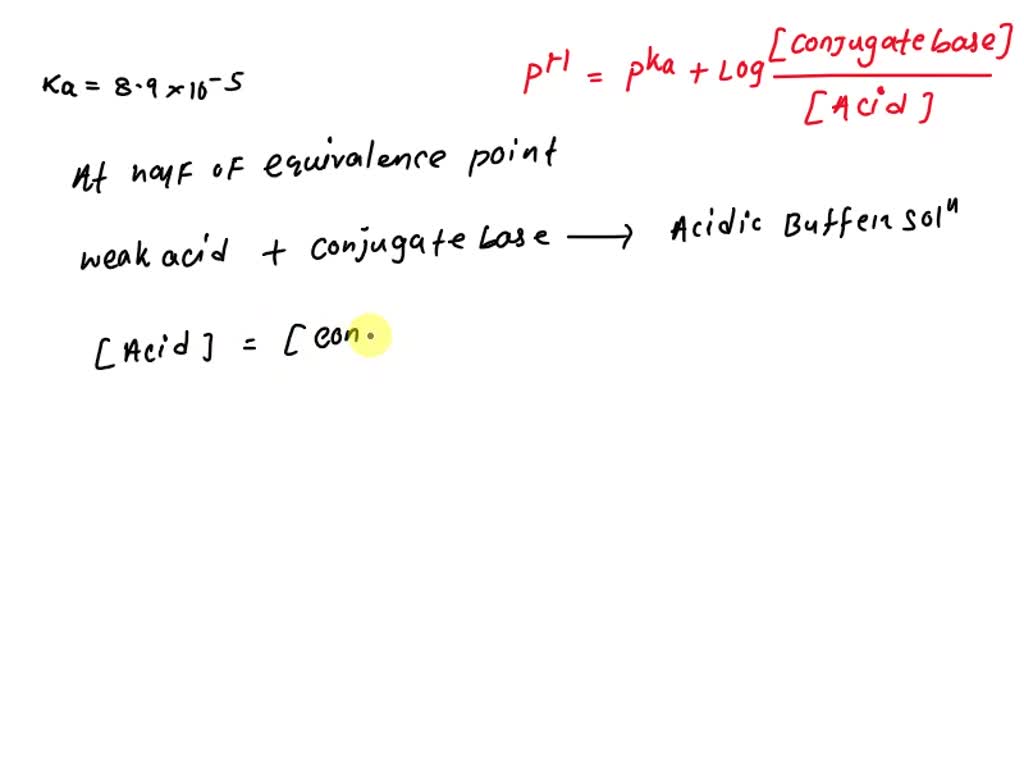 Ka = 8.9 × 10⁻⁵
pH = pka + Log [conjugate base] / [Acid]
At half of equivalence point
weak acid + conjugate base ⟶ Acidic Buffer solⁿ
[Acid] = [con.